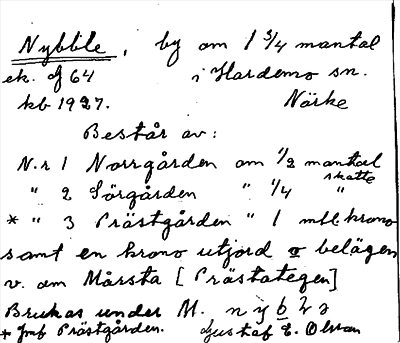 Nybble, by om 1 3/4 mantal
ek. bl 64 i Hardemo sn.
kb 1927. Närke
Består av:
N:r 1 Norrgården om 1/2 mantal skatte
" 2 Sörgården " 1/4 "
* " 3 Prästgården " 1 mtl. krono
samt en krono utjord o belägen
v. om Mårsta [Prästategen]
Brukas under M.
* Jmf Prästgården. Gustaf E. Olsson